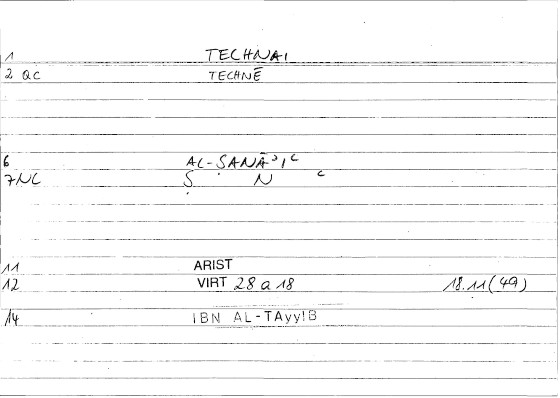 1 TECHNAI
2 QC TECHNĒ
6 AL-ṢANĀʾIʿ
7NC Ṣ N ʿ
11 ARIST
12 VIRT 28 a 18 18.11 (49)
14 IBN AL-TAyyIB